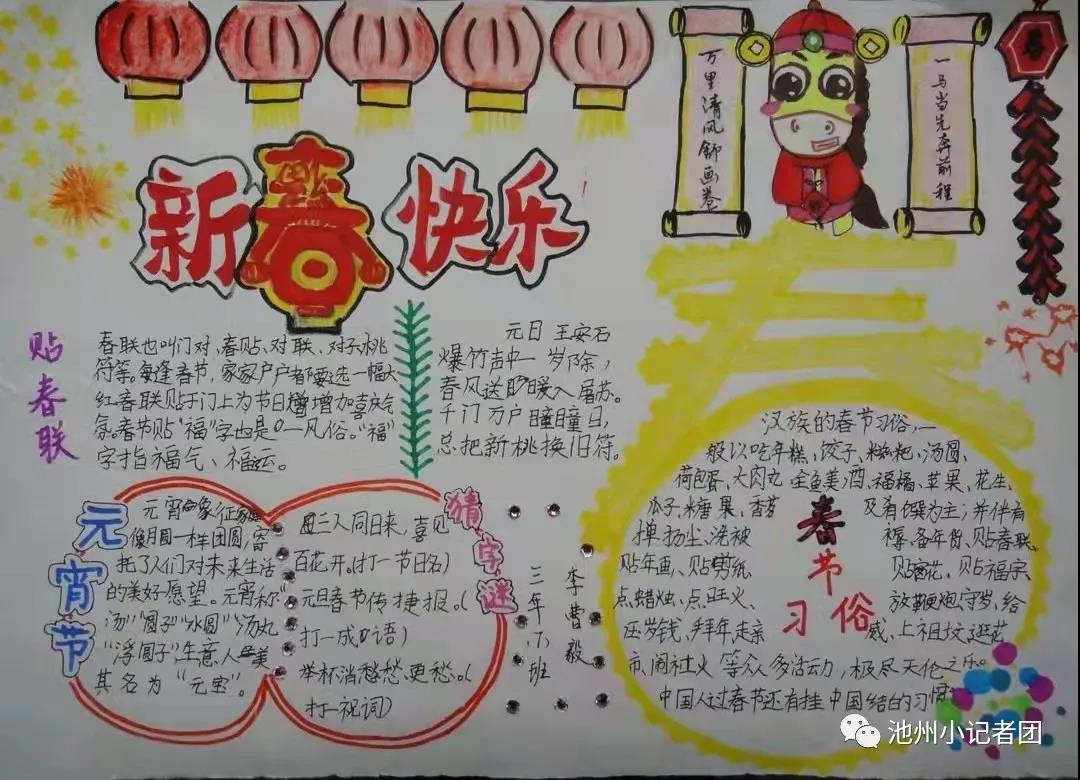 万里清风舒画卷
一马当先奔前程
春
新春快乐
贴春联
春联也叫门对、春贴、对联、对子、桃
符等。每逢春节，家家户户都要选一幅大
红春联贴于门上为节日增加喜庆气
氛。春节贴“福”字也是一风俗。“福”
字指福气、福运。
元日 王安石
爆竹声中一岁除，
春风送暖入屠苏。
千门万户瞳瞳日，
总把新桃换旧符。
元宵节
元宵象征
像月圆一样团圆，寄
托了人们对未来生活
的美好愿望。元宵称
“汤”“圆子”“水圆”“汤丸
“浮圆子”生意人美
其名为“元宝”。
猜字谜
三人同日来，喜见
百花开。（打一节日名）
元旦春节传捷报。（
打一成语）
举杯消愁愁更愁。（
打一祝词）
三年
班
李曹毅
春节习俗
汉族的春节习俗，一
般以吃年糕、饺子、糍粑、汤圆、
荷包蛋、大肉丸、全鱼、美酒、福橘、苹果、花生、
瓜子、糖果、香茗及肴馔为主；并伴有
掸扬尘、洗被褥、备年货、贴春联、
贴年画、贴剪纸、贴窗花、贴福字、
点蜡烛、点旺火、放鞭炮、守岁、给
压岁钱、拜年、走亲戚、上祖坟、逛花
市、闹社火等众多活动，极尽天伦之乐。
中国人过春节还有挂中国结的习惯
池州小记者团